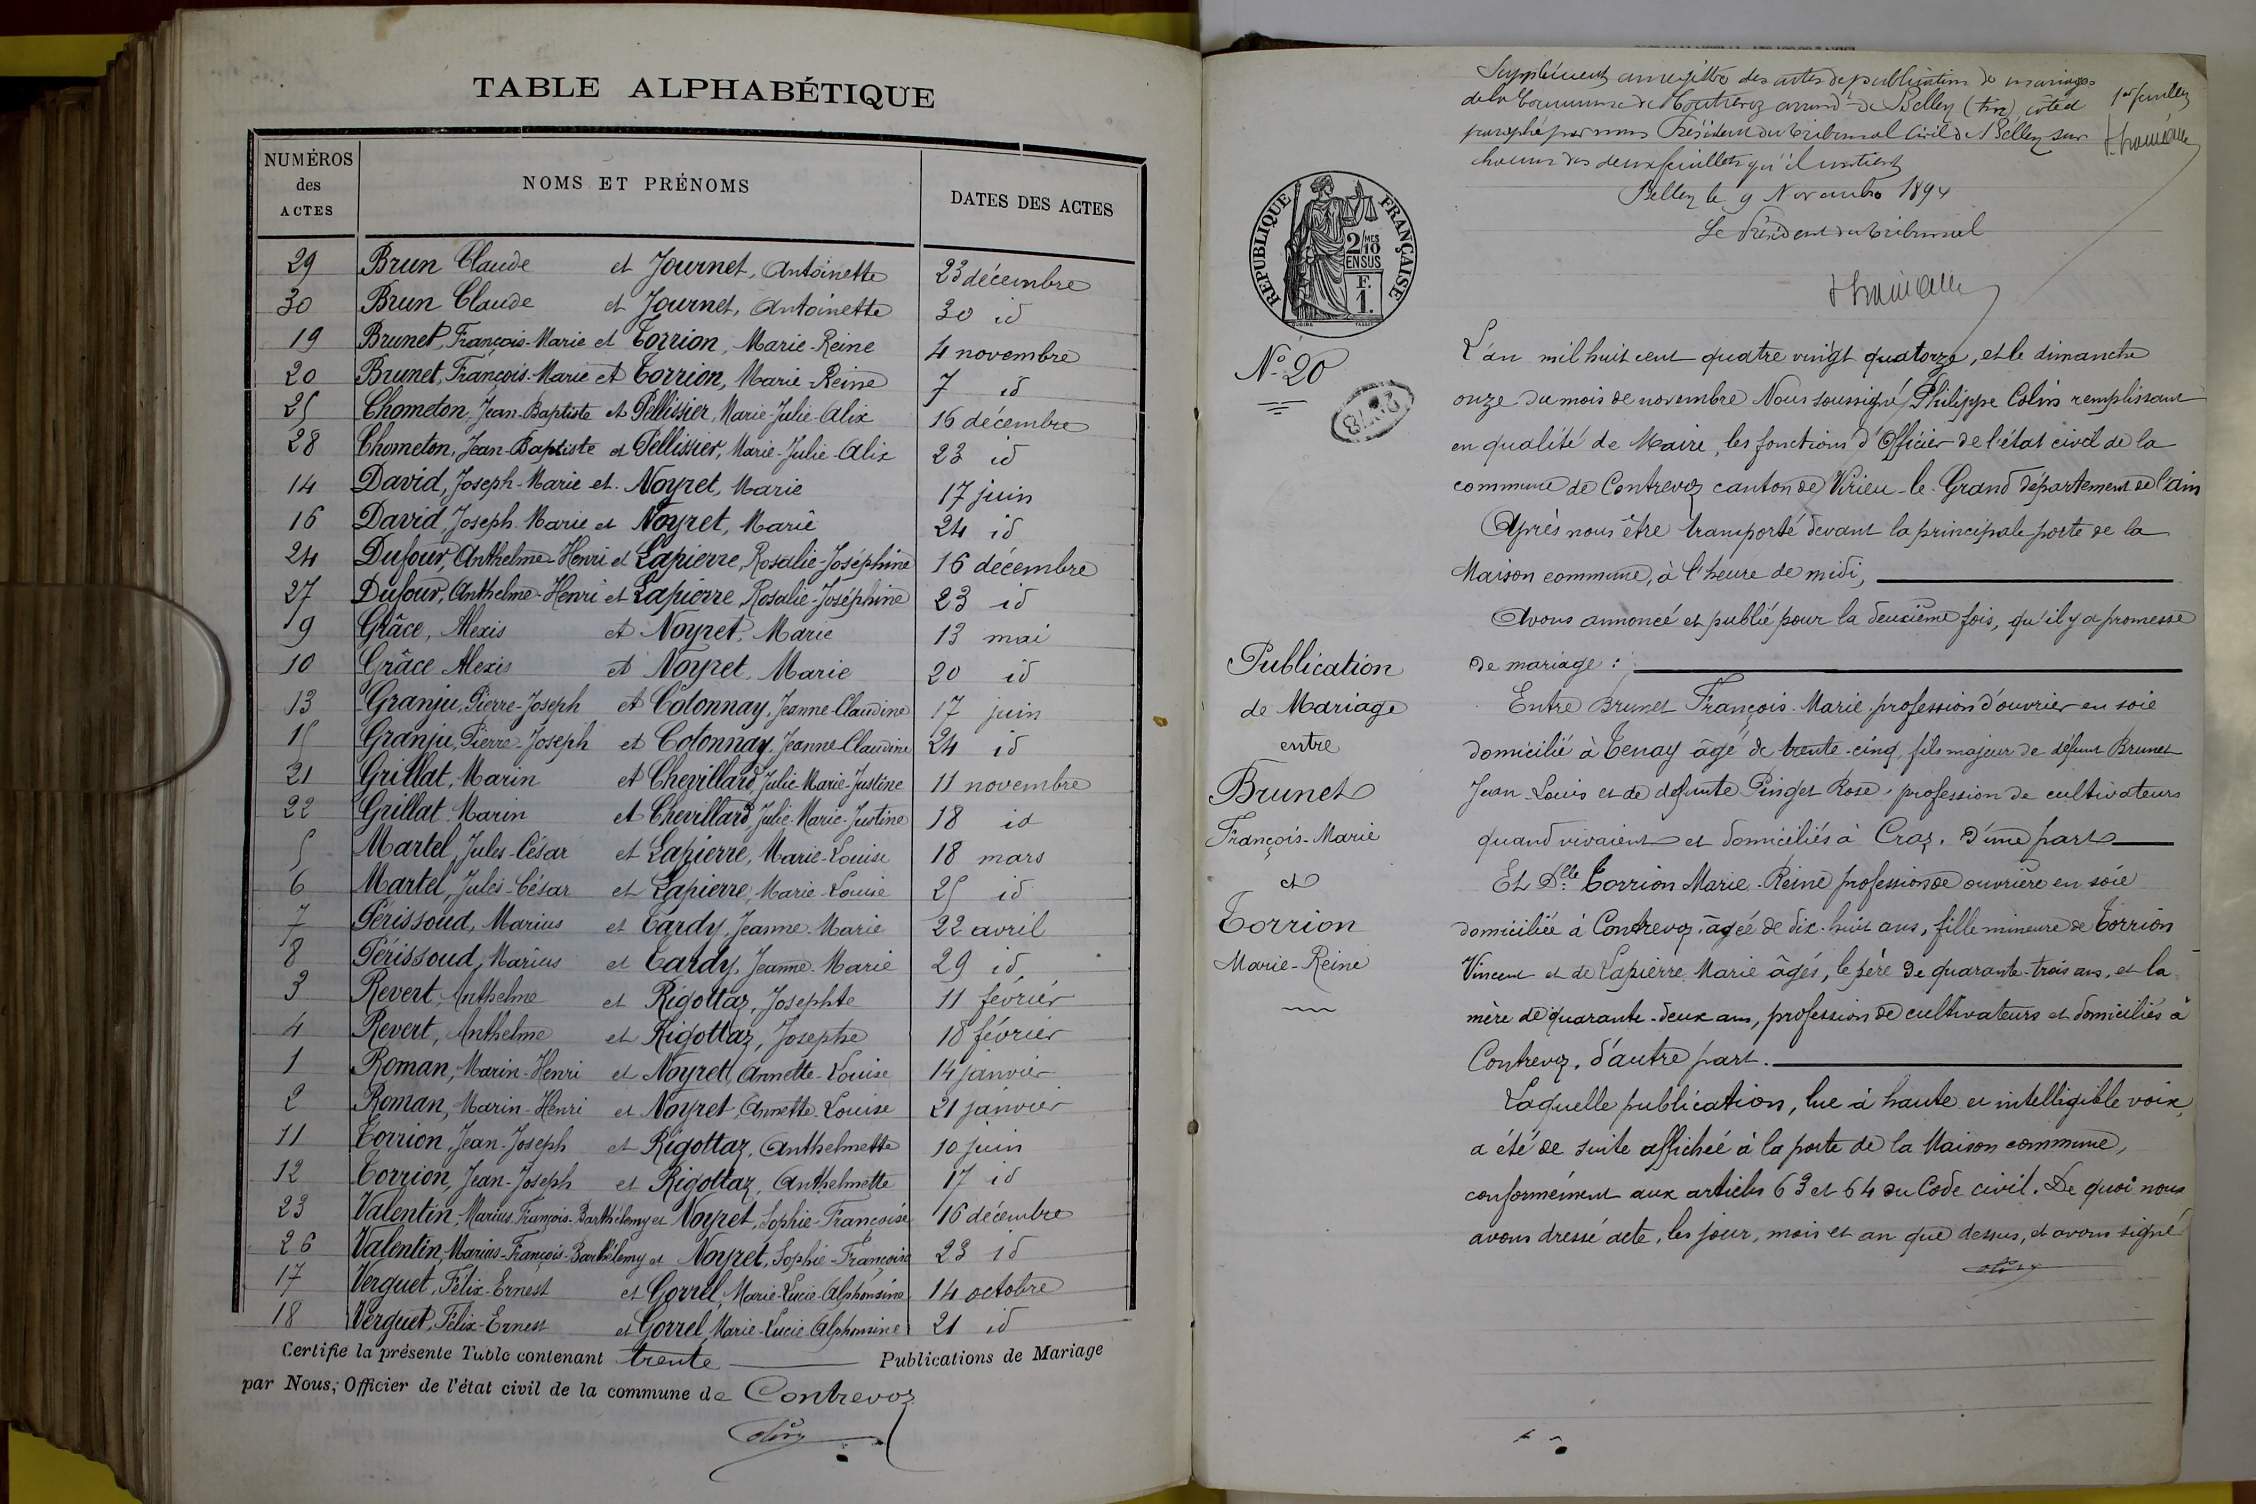 TABLE ALPHABÉTIQUE
NUMÉROS des ACTES NOMS ET PRÉNOMS DATES DES ACTES
29 Brun Claude et Journet, Antoinette 23 décembre
30 Brun Claude et Journet, Antoinette 30 id
19 Brunet, François-Marie et Torrion, Marie-Reine 4 novembre
20 Brunet, François-Marie et Torrion, Marie-Reine 7 id
25 Chometon, Jean-Baptiste et Pellissier, Marie-Julie-Alix 16 décembre
28 Chometon, Jean-Baptiste et Pellissier, Marie-Julie-Alix 23 id
14 David, Joseph-Marie et Noyret, Marie 17 juin
16 David, Joseph Marie et Noyret, Marie 24 id
24 Dufour, Anthelme-Henri et Lapierre, Rosalie-Joséphine 16 décembre
27 Dufour, Anthelme-Henri et Lapierre, Rosalie-Joséphine 23 id
9 Grâce, Alexis et Noyret, Marie 13 mai
10 Grâce Alexis et Noyret, Marie 20 id
13 Granju, Pierre-Joseph et Colonnay, Jeanne-Claudine 17 juin
15 Granju, Pierre-Joseph et Colonnay, Jeanne-Claudine 24 id
21 Grillat, Marin et Chevillard, Julie-Marie-Justine 11 novembre
22 Grillat Marin et Chevillard, Julie-Marie-Justine 18 id
5 Martel, Jules-César et Lapierre, Marie-Louise 18 mars
6 Martel, Jules-César et Lapierre, Marie-Louise 25 id
7 Périssoud, Marius et Tardy, Jeanne-Marie 22 avril
8 Périssoud, Marius et Tardy, Jeanne-Marie 29 id
3 Revert, Anthelme et Rigottaz, Josephte 11 février
4 Revert, Anthelme et Rigottaz, Josephte 18 février
1 Roman, Marin-Henri et Noyret, Annette-Louise 14 janvier
2 Roman, Marin-Henri et Noyret, Annette-Louise 21 janvier
11 Torrion, Jean-Joseph et Rigottaz, Anthelmette 10 juin
12 Torrion, Jean-Joseph et Rigottaz, Anthelmette 17 id
23 Valentin, Marius François-Barthélemy et Noyret, Sophie-Françoise 16 décembre
26 Valentin, Marius-François-Barthélemy et Noyret, Sophie-Françoise 23 id
17 Verguet, Félix-Ernest et Gorrel, Marie-Lucie-Alphonsine 14 octobre
18 Verguet, Félix-Ernest et Gorrel, Marie-Lucie Alphonsine 21 id
Certifie la présente Table contenant trente Publications de Mariage
par Nous, Officier de l'état civil de la commune de Contrevoz
Supplément au registre des actes de publication de mariages
de la Commune de Contrevoz arrond.t de Belley (Ain), côté et
paraphé par nous Président du tribunal Civil de Belley sur
chacun des deux feuillets qu'il contient
Belley le 9 Novembre 1894
Le Président du tribunal
1er feuillet
RÉPUBLIQUE FRANÇAISE
2/10 MES
EN SUS
F.
1.
No 20
L'an mil huit cent quatre vingt quatorze, et le dimanche
onze du mois de novembre Nous soussigné, Philippe Colin remplissant
en qualité de Maire, les fonctions d'Officier de l'état civil de la
commune de Contrevoz canton de Virieu-le-Grand département de l'ain
Après nous être transporté devant la principale porte de la
Maison commune, à l'heure de midi,
Avons annoncé et publié pour la deuxième fois, qu'il y a promesse
de mariage :
Publication
de Mariage
entre
Brunet
François-Marie
et
Torrion
Marie-Reine
Entre Brunet François-Marie profession d'ouvrier en soie
domicilié à Tenay âgé de trente-cinq, fils majeur de défunt Brunet
Jean-Louis et de défunte Pinget Rose, profession de cultivateurs
quand vivaient et domiciliés à Craz. D'une part
Et Dlle Torrion Marie-Reine profession de ouvrière en soie
domiciliée à Contrevoz, âgée de dix-huit ans, fille mineure de Torrion
Vincent et de Lapierre Marie âgés, le père de quarante-trois ans, et la
mère de quarante-deux ans, profession de cultivateurs et domiciliés à
Contrevoz, d'autre part.
Laquelle publication, lue à haute et intelligible voix,
a été de suite affichée à la porte de la Maison commune,
conformément aux articles 63 et 64 du Code civil. De quoi nous
avons dressé acte, les jour, mois et an que dessus, et avons signé